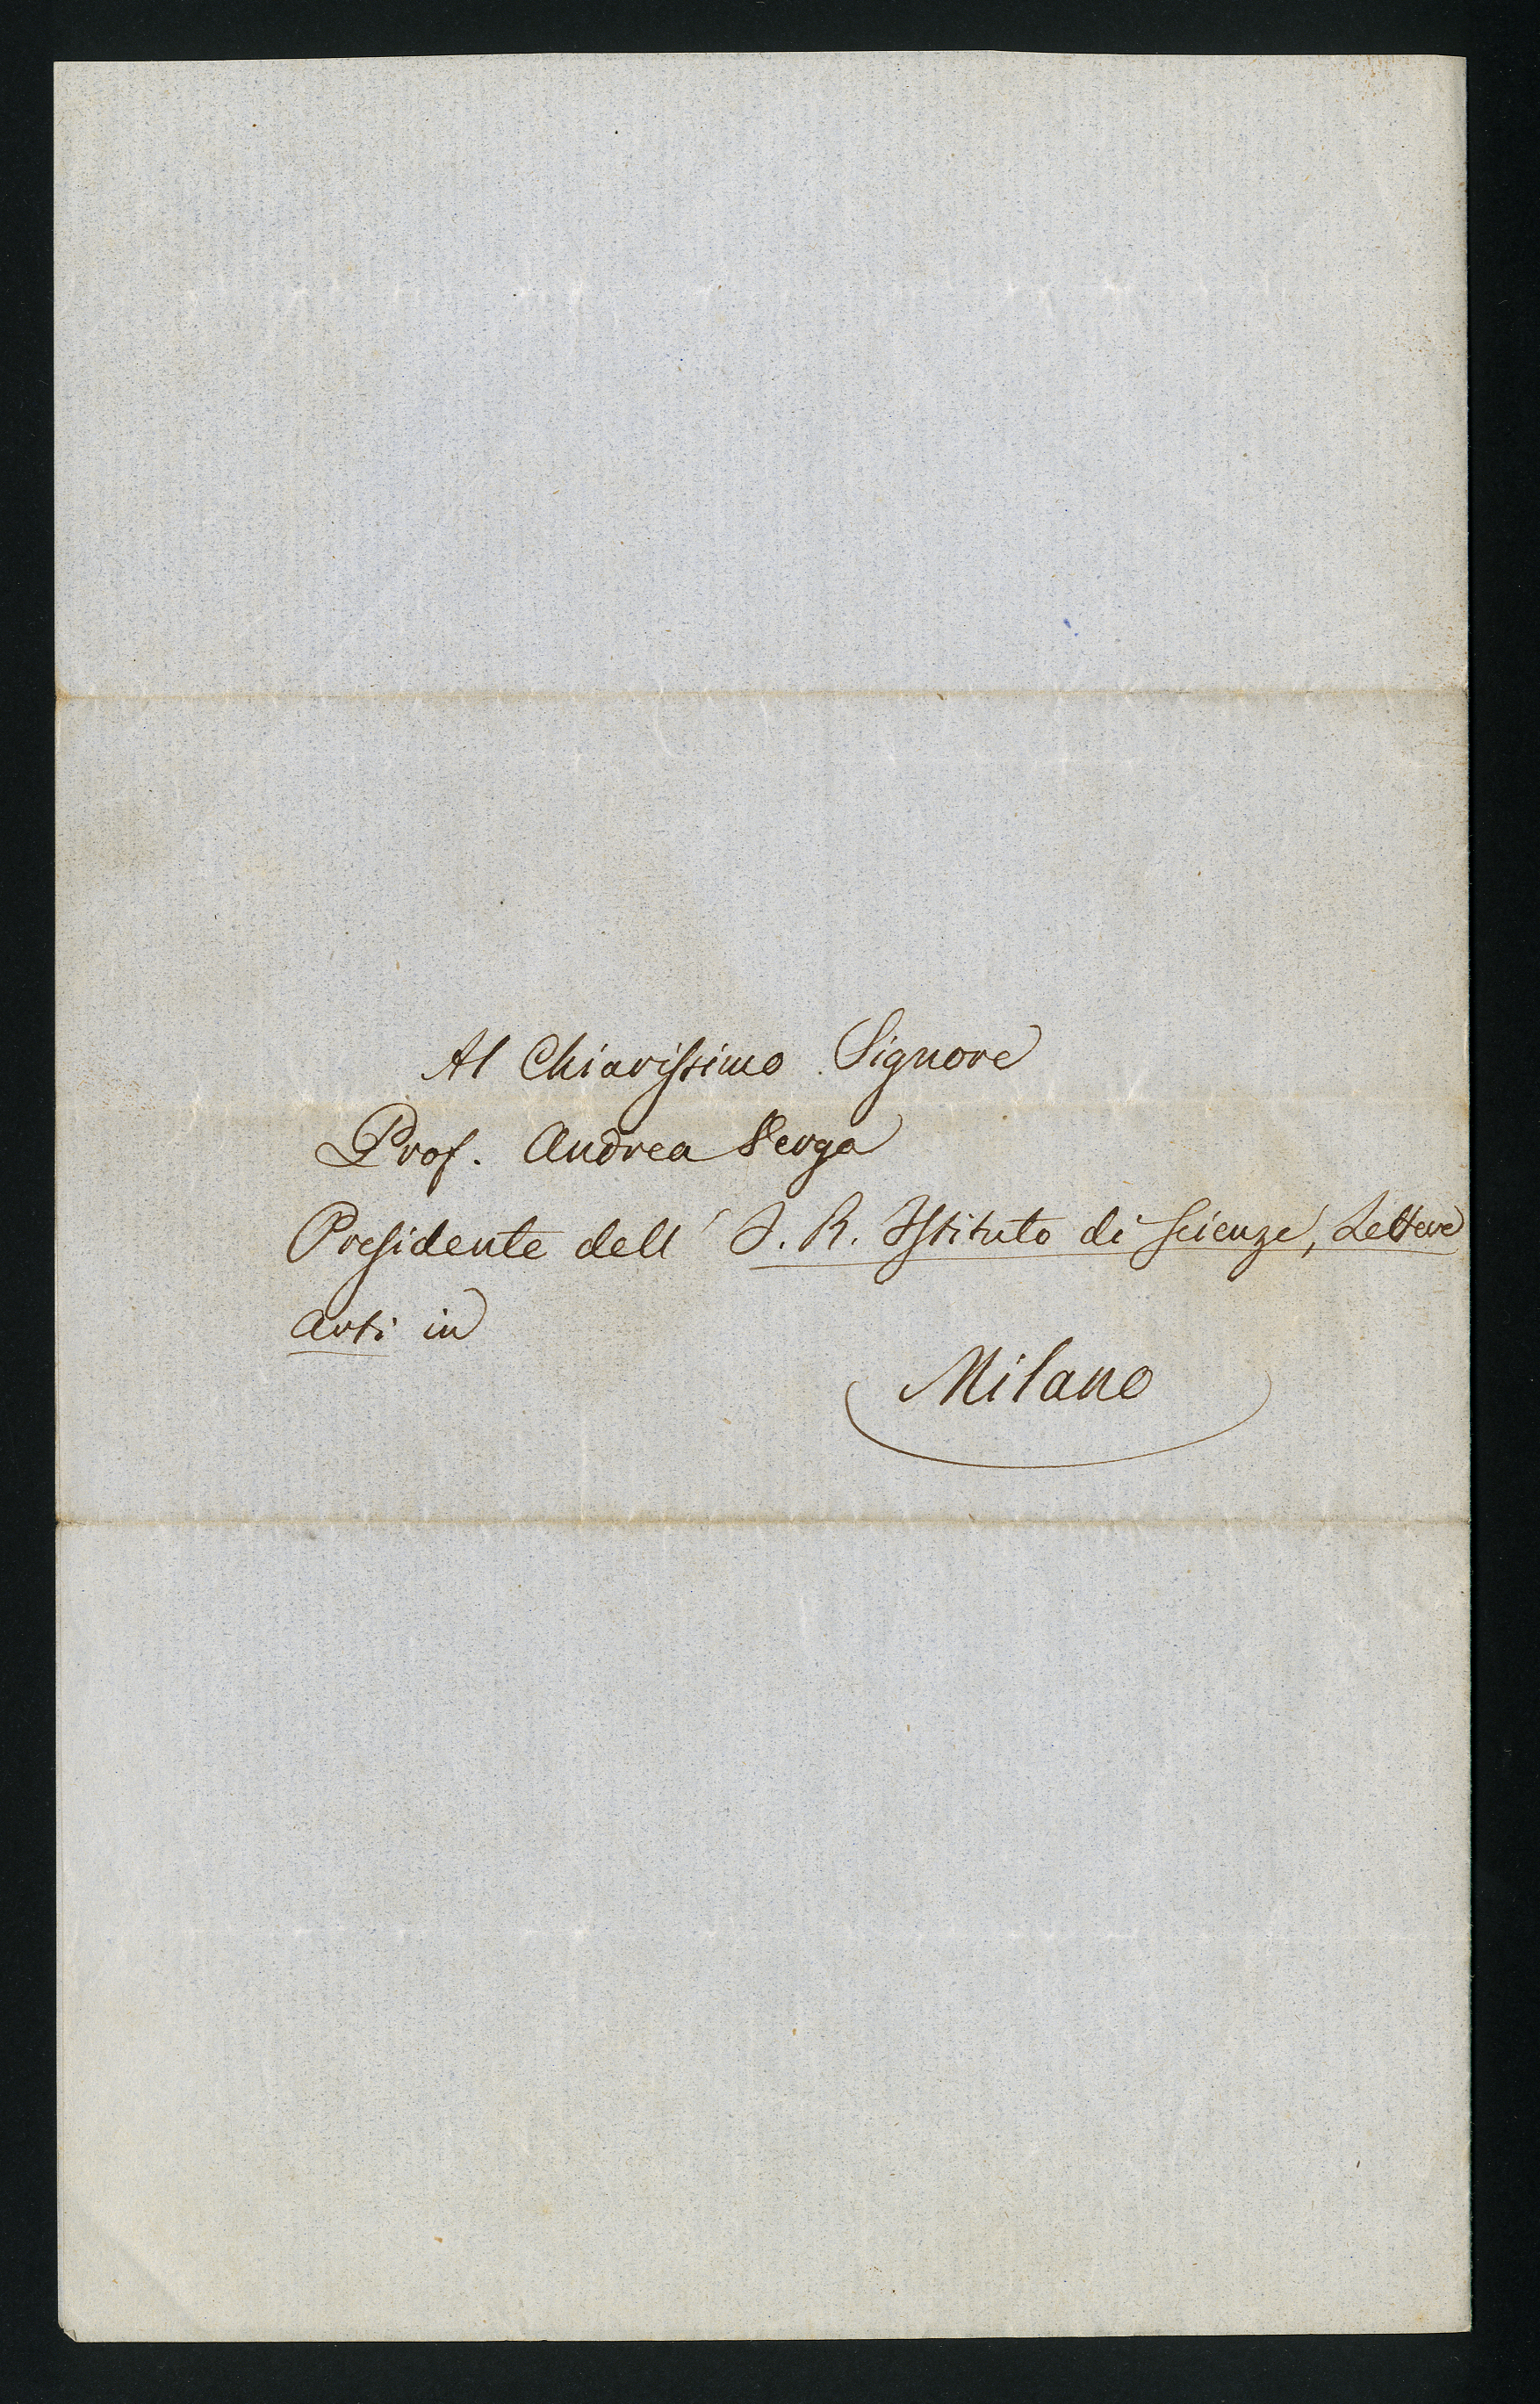 Al Chiarissimo Signore
Prof. Andrea Verga
Presidente dell' I. R. Istituto di Scienze, Lettere
Arti in
Milano